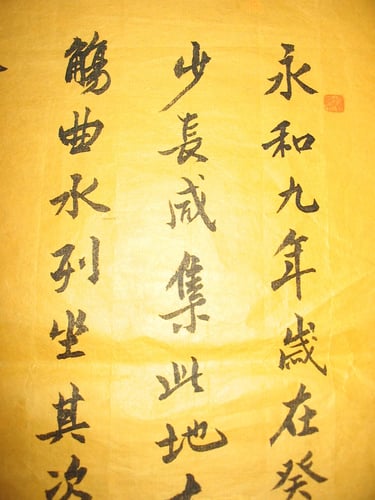 永和九年歲在癸
少長咸集此地
觴曲水列坐其次